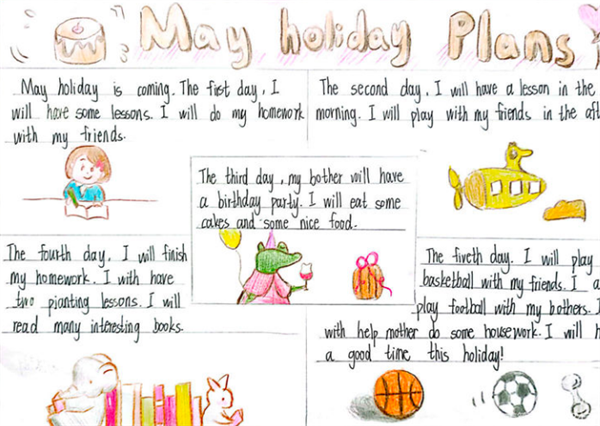 May holiday Plans
May holiday is coming. The first day, I
will have some lessons. I will do my homework
with my friends.
The second day, I will have a lesson in the
morning. I will play with my friends in the
The third day, my bother will have
a birthday party. I will eat some
cakes and some nice food.
The fourth day, I will finish
my homework. I with have
two pianting lessons. I will
read many interesting books.
The fiveth day. I will play
basketball with my friends. I
play football with my bothers.
with help mother do some housework. I will
a good time this holiday!